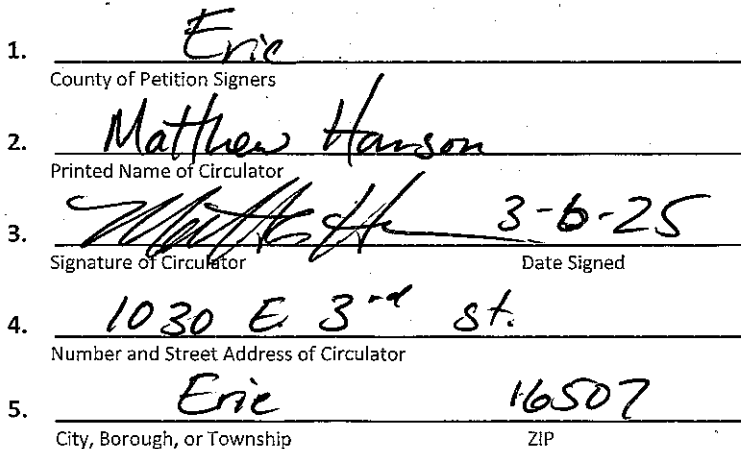 1. Erie
County of Petition Signers
2. Matthew Hanson
Printed Name of Circulator
3. 3-6-25
Signature of Circulator Date Signed
4. 1030 E. 3rd st.
Number and Street Address of Circulator
5. Erie 16507
City, Borough, or Township ZIP